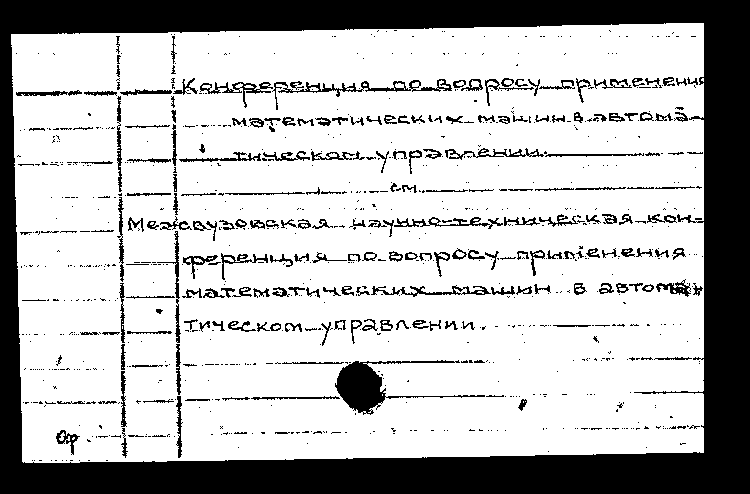 Конференция по вопросу применения
математических машин в автома-
тическом управлении.
см.
Межвузовская научно-техническая кон-
ференция по вопросу применения
математических машин в автома-
тическом управлении.
Оф.